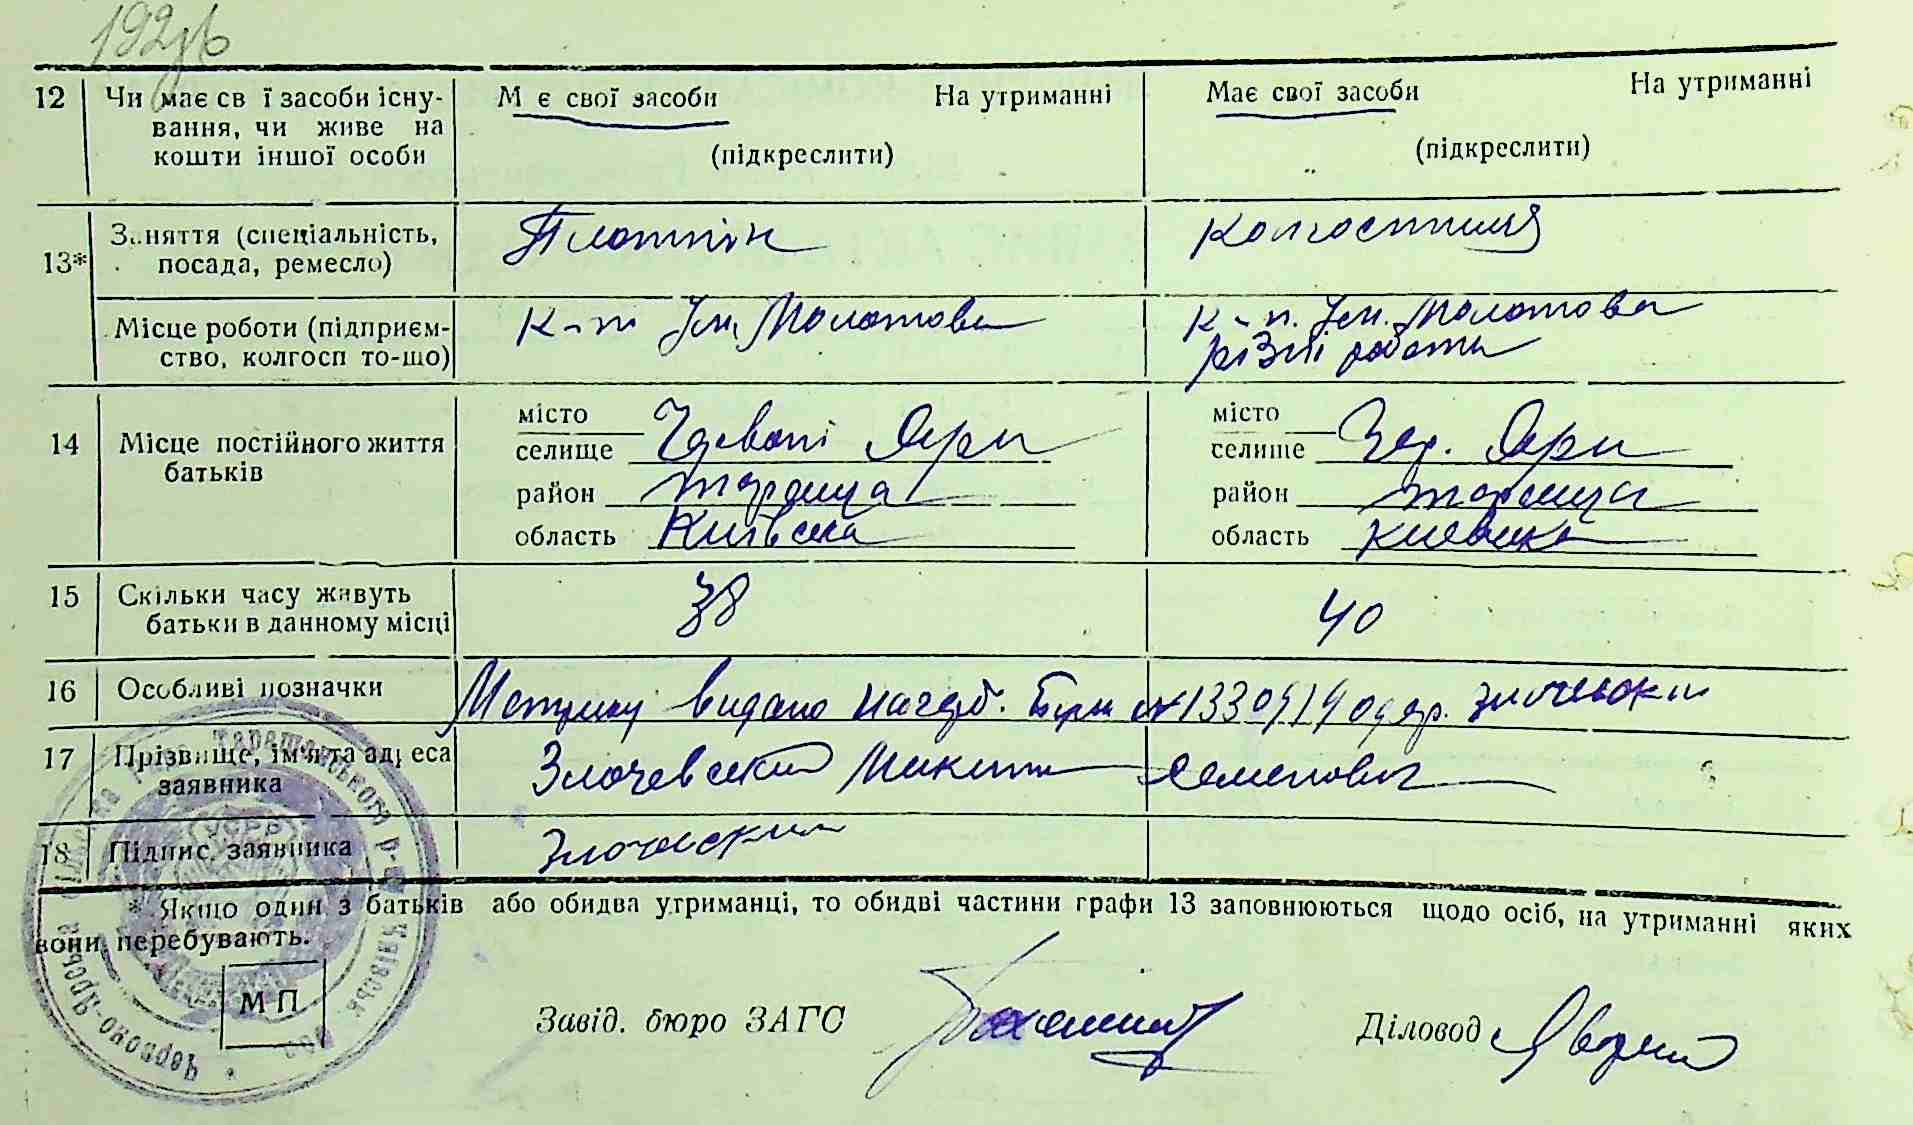 192
12 Чи має св ї засоби існу- М є свої засоби На утриманні Має свої засоби На утриманні
вання, чи живе на
кошти іншої особи (підкреслити) (підкреслити)
13* Заняття (спеціальність, Плотнік Колгоспниця
посада, ремесло)
Місце роботи (підприєм- К-п Ім. Молотова К-п. Ім. Молотова
ство, колгосп то-що) різні роботи
14 Місце постійного життя
батьків
місто місто
селище Чрвоні Яри селище Чер. Яри
район Тараща район Тараща
область Київська область Киевска
15 Скільки часу живуть 38 40
батьки в данному місці
16 Особливі позначки Метрику видано одер. Злочевский
17 Прізвище, ім'я та адреса Злочевский Микита Семенович
заявника
18 Підпис заявника Злочевский
* Якщо один з батьків або обидва утриманці, то обидві частини графи 13 заповнюються щодо осіб, на утриманні яких
вони перебувають.
МП
Завід. бюро ЗАГС Діловод
УСРР
Таращанського р-ну Київськ.
Червоно-Ярська